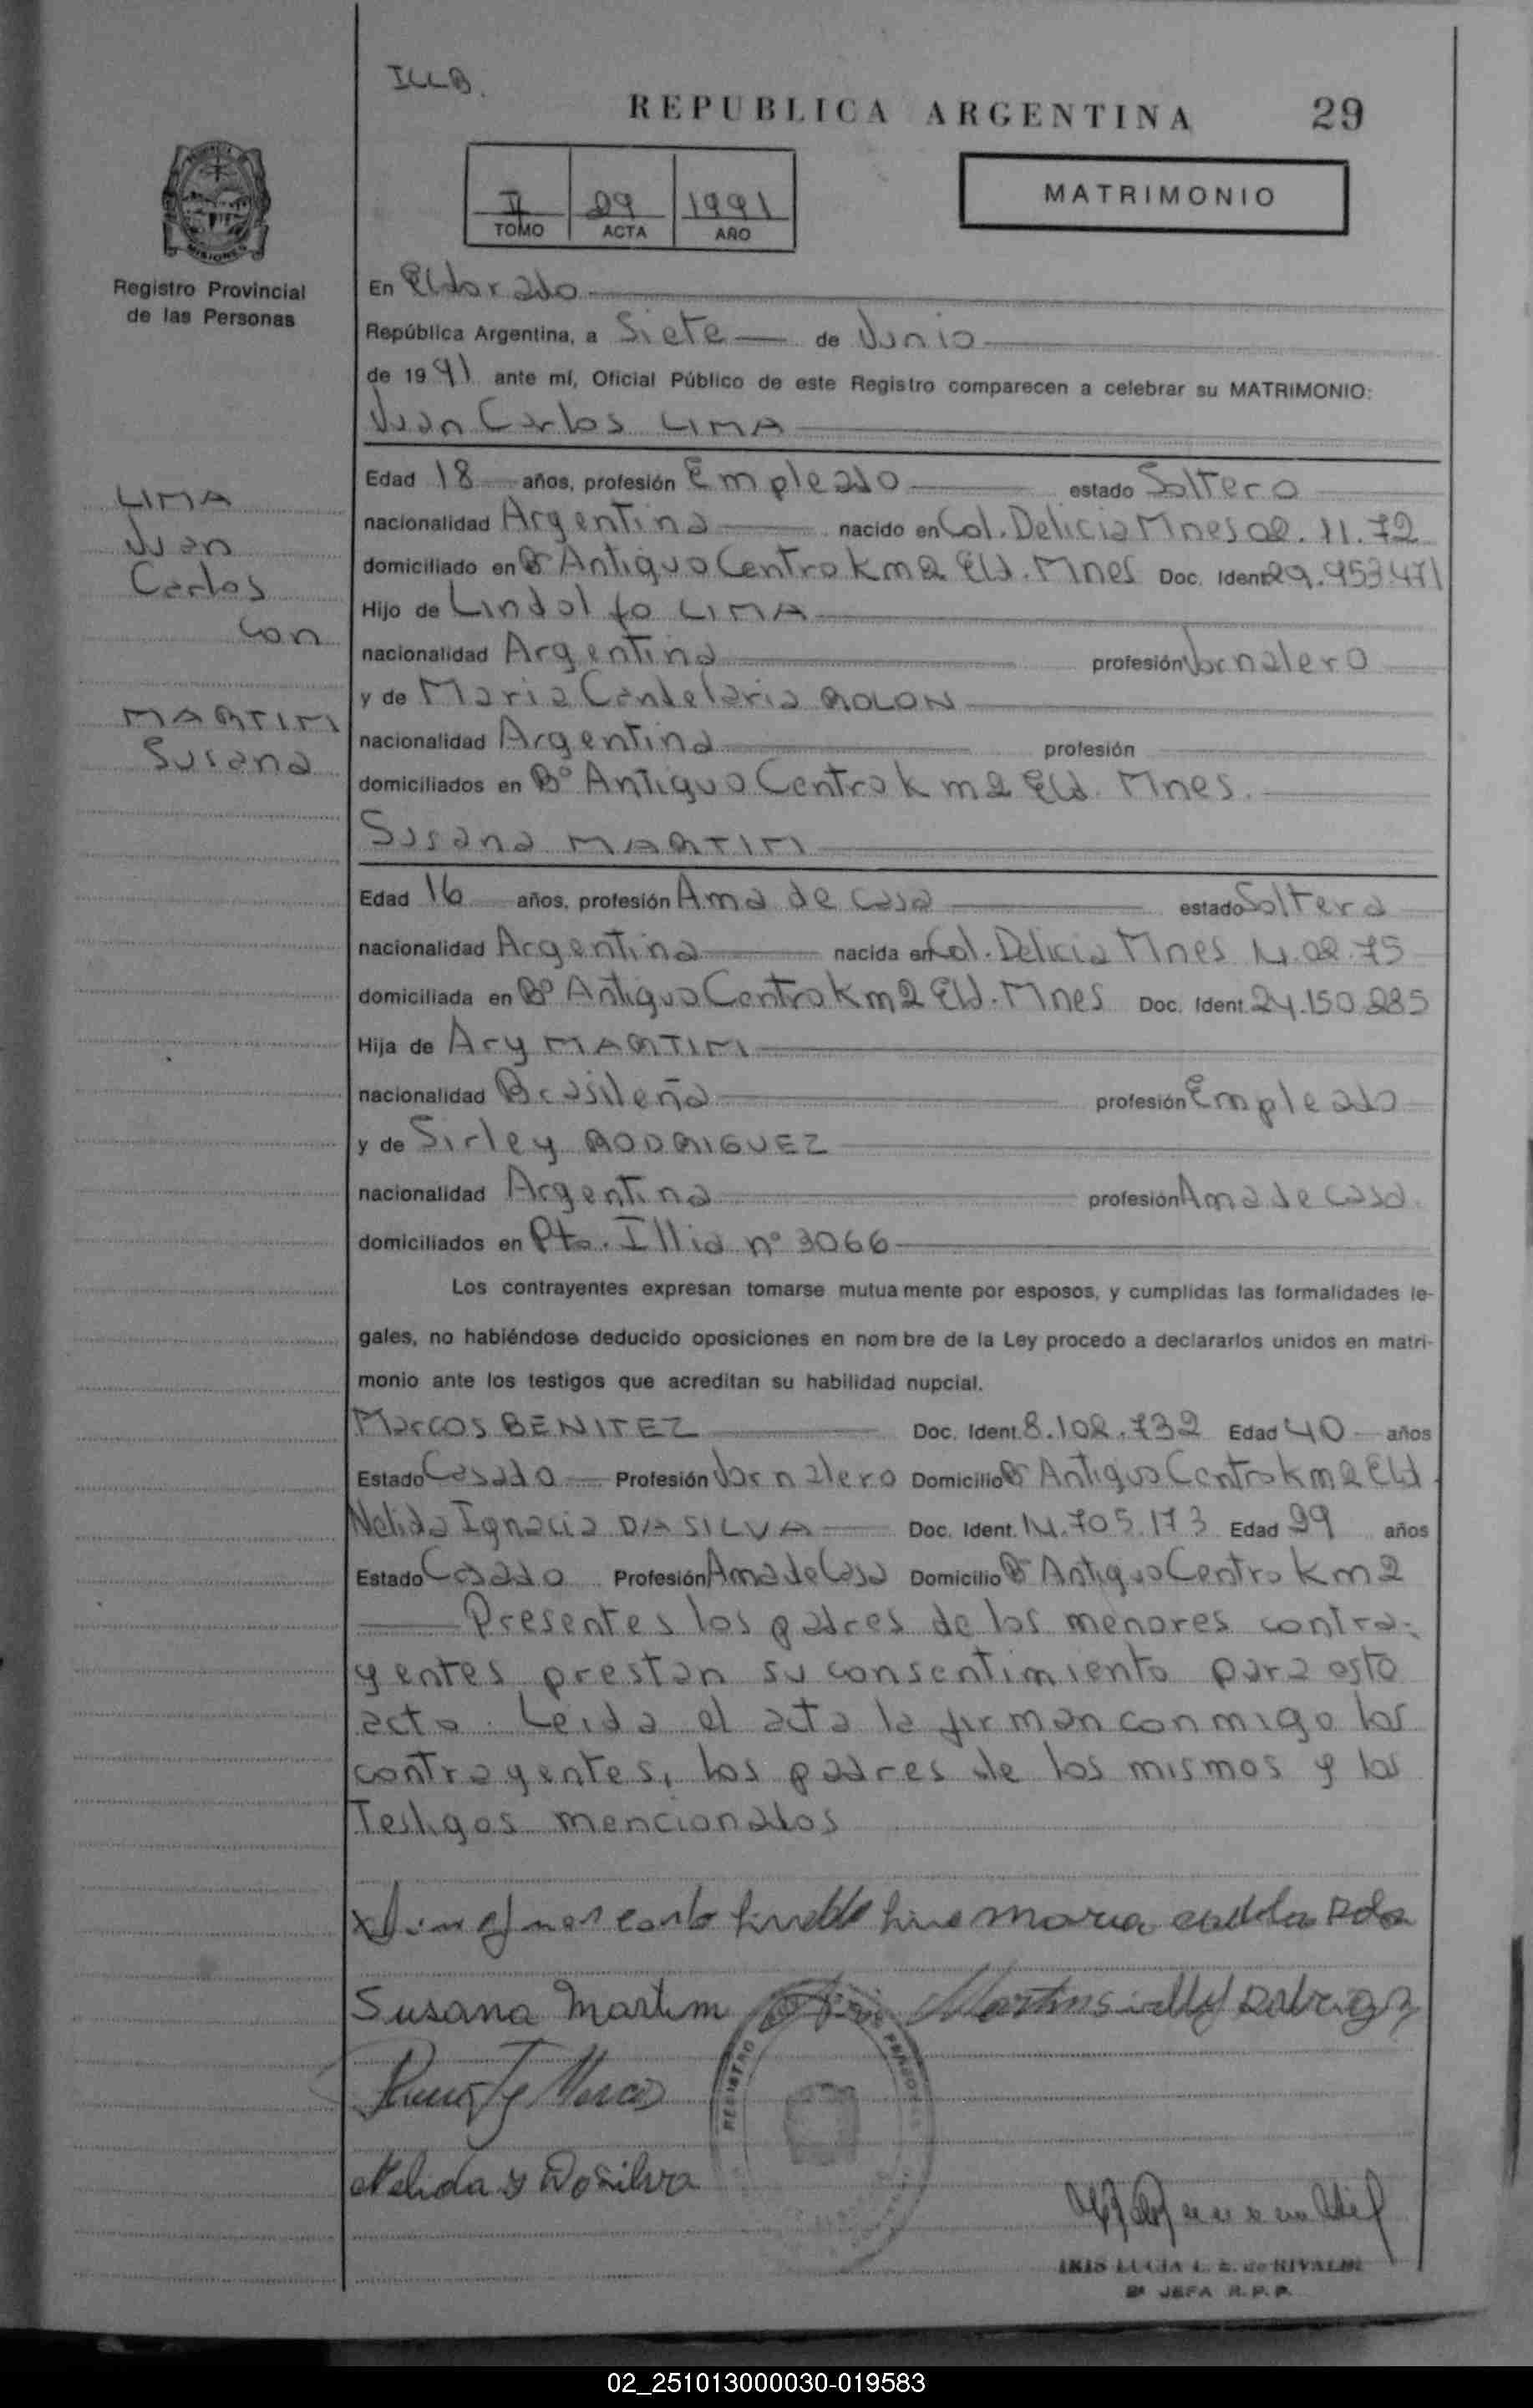 ILLB.
REPUBLICA ARGENTINA 29
II 29 1991
TOMO ACTA AÑO
MATRIMONIO
MISIONES
Registro Provincial
de las Personas
En Eldorado
República Argentina, a Siete de Junio
de 1991 ante mí, Oficial Público de este Registro comparecen a celebrar su MATRIMONIO:
Juan Carlos LIMA
LIMA
Juan
Carlos
con
MARTIM
Susana
Edad 18 años, profesión Empleado estado Soltero
nacionalidad Argentina nacido en Col. Delicia Mnes 02.11.72
domiciliado en Bº Antiguo Centro km 2 Eld. Mnes Doc. Ident 29.953.471
Hijo de Lindolfo LIMA
nacionalidad Argentina profesión Jornalero
y de Maria Candelaria ROLON
nacionalidad Argentina profesión
domiciliados en Bº Antiguo Centro km 2 Eld. Mnes.
Susana MARTIM
Edad 16 años, profesión Ama de casa estado Soltera
nacionalidad Argentina nacida en Col. Delicia Mnes 14.02.75
domiciliada en Bº Antiguo Centro km 2 Eld. Mnes Doc. Ident. 24.150.285
Hija de Ary MARTIM
nacionalidad Brasileña profesión Empleado
y de Sirley RODRIGUEZ
nacionalidad Argentina profesión Ama de casa
domiciliados en Pto. Illia nº 3066
Los contrayentes expresan tomarse mutua mente por esposos, y cumplidas las formalidades le-
gales, no habiéndose deducido oposiciones en nom bre de la Ley procedo a declararlos unidos en matri-
monio ante los testigos que acreditan su habilidad nupcial.
Marcos BENITEZ Doc. Ident. 8.102.732 Edad 40 años
Estado Casado Profesión Jornalero Domicilio Bº Antiguo Centro km 2 Eld
Nelida Ignacia DA SILVA Doc. Ident. 14.705.173 Edad 29 años
Estado Casado Profesión Ama de Casa Domicilio Bº Antiguo Centro km 2
Presentes los padres de los menores contra-
yentes prestan su consentimiento para esto
acto. Leida el acta la firman conmigo los
contrayentes, los padres de los mismos y los
Testigos mencionados
Susana Martim
Nelida Y Dasilva
REGISTRO
IRIS LUCIA L. E. de RIVALDI
2ª JEFA R.P.P.
02_251013000030-019583